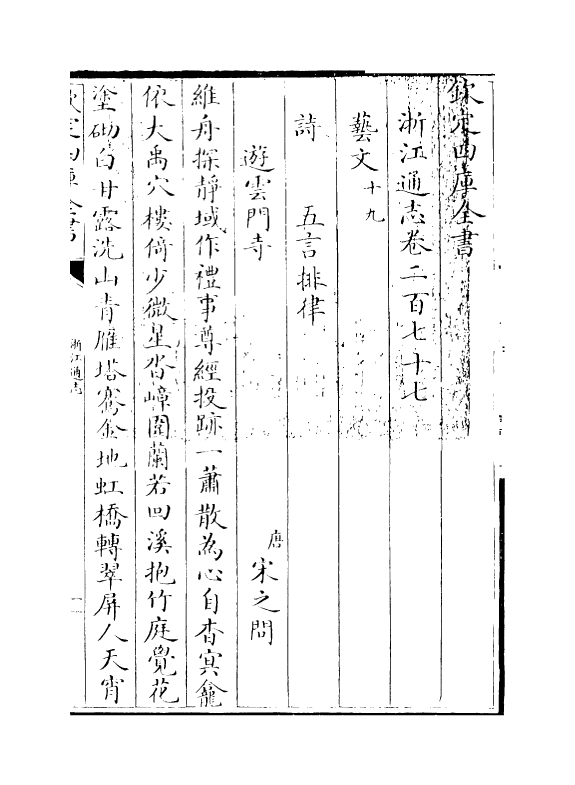 欽定四庫全書
浙江通志卷二百七十七
藝文十九
詩　五言排律
遊雲門寺　唐宋之問
維舟探靜域作禮事尊經投跡一蕭散為心自杳冥龕
依大禹穴樓倚少微星沓嶂圍蘭若回溪抱竹庭覺花
塗砌白甘露洗山青雁塔騫金地虹橋轉翠屏人天宵
欽定四庫全書
浙江通志
一